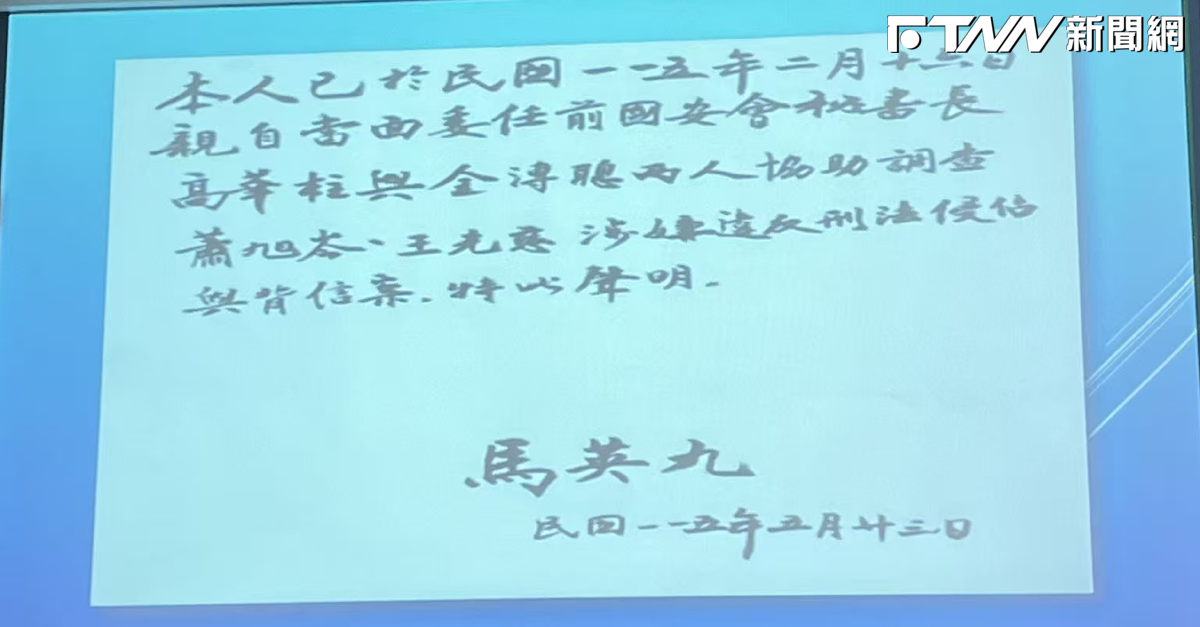 FTNN新聞網
本人已於民國一一五年二月十六日
親自當面委任前國安會秘書長
高華柱與金溥聰兩人協助調查
蕭旭岑、王光慈涉嫌違反刑法侵佔
與背信案.特此聲明.
馬英九
民國一一五年五月廿三日